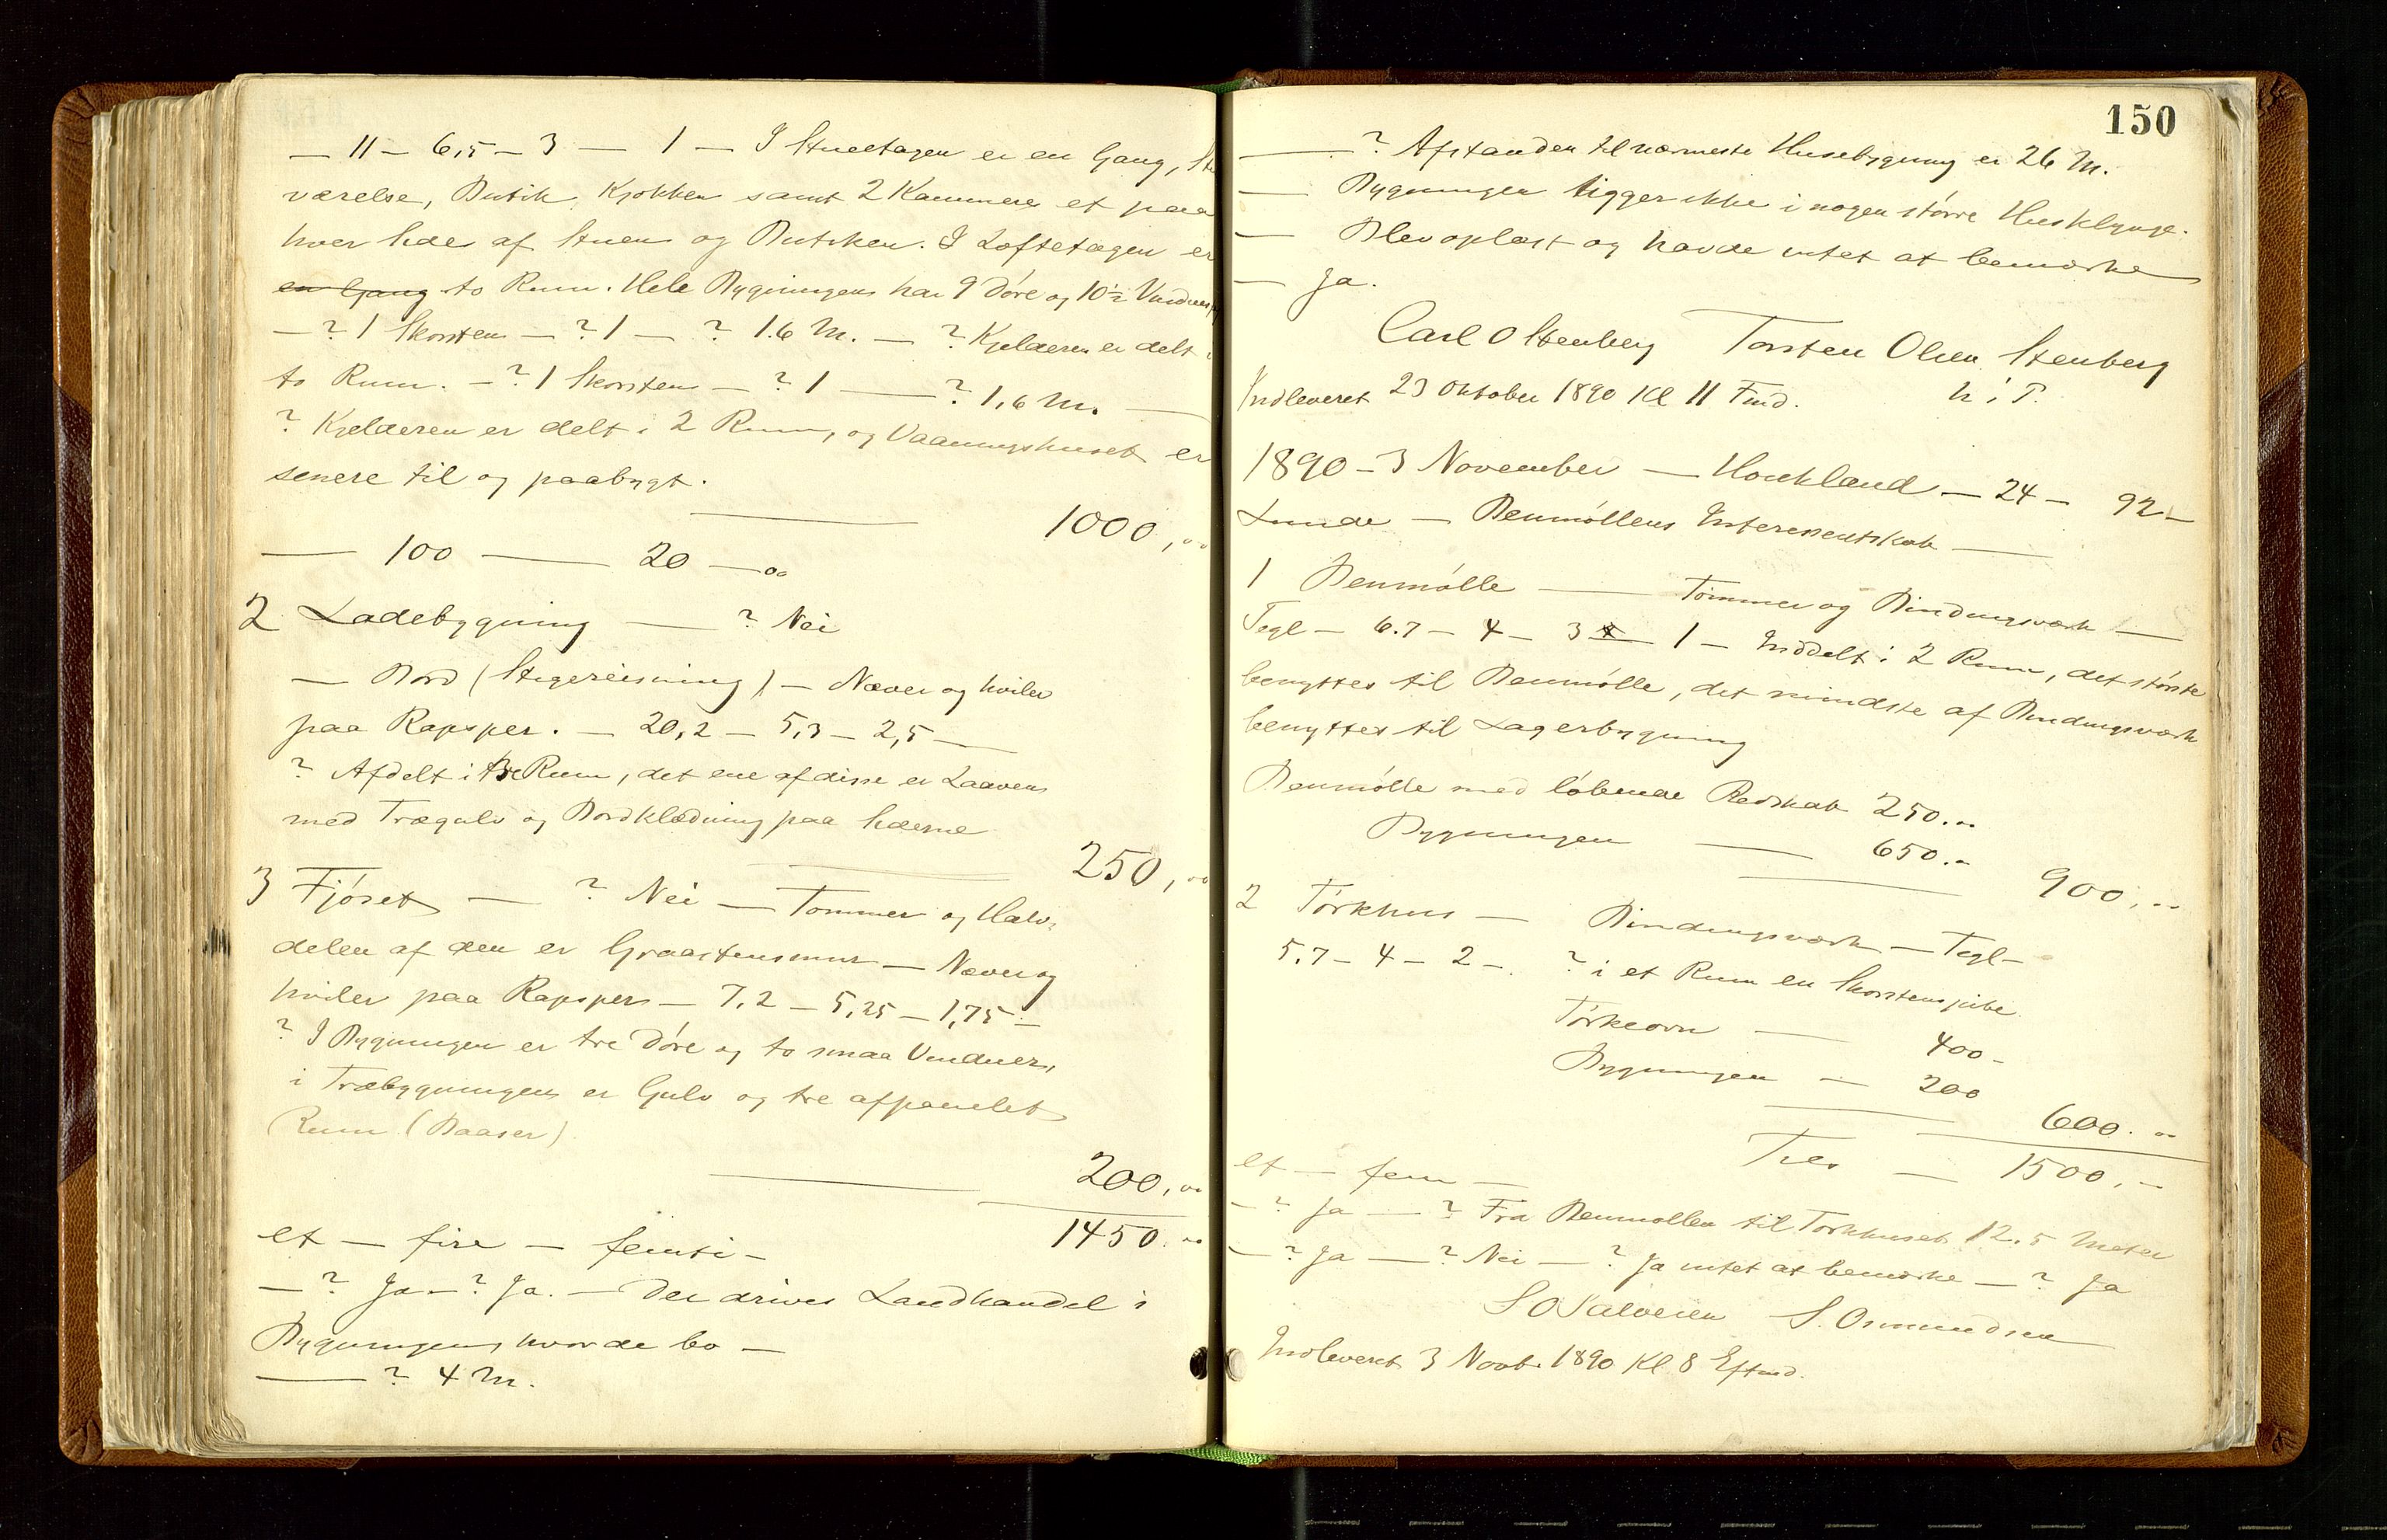 — 11 — 6,5 — 3 — 1 — I Stueetagen er en Gang,
værelse, Butik, Kjøkken samt 2 Kammere et paa
hver side af Stuen og Butiken. I Loftetagen er
en Gang to Rum. Hele Bygningen har 9 Døre og 10½ Vinduer
— ? 1 Skorsten — ? 1 — ? 1.6 M. — ? Kjelderen er delt i
to Rum. — ? 1 Skorsten — ? 1 — ? 1,6 M. —
? Kjelderen er delt i 2 Rum, og Vaaningshuset er
senere til og paabygt.
— 1000,00
— 100 — 20 — 00
2 Ladebygning — ? Nei
— Bord (Stegereisning) — Næver og hviler
paa Rapsper. — 20,2 — 5,3 — 2,5 —
? Afdelt i tre Rum, det ene af disse er Laaven
med Trægulv og Bordklædning paa siderne
— 250,00
3 Fjøset — ? Nei — Tømmer og Halv-
delen af den er Graastensmur — Næver og
hviler paa Rapsper — 7,2 — 5,25 — 1,75 —
? I Bygningen er tre Døre og to smaa Vinduer,
i Træbygningen er Gulv og tre afpanelet
Rum (Baaser).
— 200,00
et — fire — femti — 1450.00
— ? Ja — ? Ja. — Der drives Landhandel i
Bygningen hvor de bo —
— ? 4 M.
150
— ? Afstanden til nærmeste Husebygning er 26 M.
— Bygningen ligger ikke i nogen større Husklynge.
— Blev oplæst og havde intet at bemærke
— Ja.
Carl O Stenberg Torsten Olsen Stenberg
Indleveret 23 Oktober 1890 Kl 11 Fmd. h i P.
1890 — 3 November — Houkland — 24 — 92 —
Lunde — Benmøllens Interessentskab —
1 Benmølle — Tømmer og Bindingsværk —
Tegl — 6.7 — 4 — 3 — 1 — Inddelt i 2 Rum, det største
benyttes til Benmølle, det mindste af Bindingsværk
benyttes til Lagerbygning
Benmølle med løbende Redskab 250.00
Bygningen — 650.00
900,00
2 Tørkhus — Bindingsværk — Tegl —
5,7 — 4 — 2 — ? i et Rum en Skorstenspibe
Tørkeovn — 400 —
Bygningen — 200
600.00
Tres — 1500,—
et — fem —
— ? Ja — ? Fra Benmøllen til Tørkhuset 12.5 Meter
— ? Ja — ? Nei — ? Ja intet at bemærke — ? Ja
S O Salvesen S. Osmundsen
Indleveret 3 Novbr 1890 Kl 8 Eftmd.